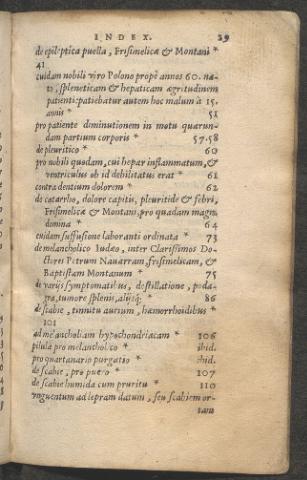 INDEX. 39
de epileptica puella, Frisimelicæ & Montani *
41
cuidam nobili viro Polono propè annos 60. na-
ti, spleneticam & hepaticam ægritudinem
patienti: patiebatur autem hoc malum à 15.
annis * 51
pro patiente diminutionem in motu quarun-
dam partium corporis * 57.58
de pleuritico * 60
pro nobili quodam, cui hepar inflammatum, &
ventriculus ob id debilitatus erat * 61
contra dentium dolorem * 62
de catarrho, dolore capitis, pleuritide & febri,
Frisimelicæ & Montani, pro quadam magna
domina * 64
cuidam suffusione laboranti ordinata * 73
de melancholico Iudæo, inter Clarissimos Do-
ctores Petrum Nauarram, frisimelicam, &
Baptistam Montanum * 75
de varijs symptomatibus, destillatione, poda-
gra, tumore splenis, alijsq; * 86
de scabie, tinnitu aurium, hæmorrhoidibus *
101
ad melancholiam hypochondriacam * 106
pilulæ pro melancholico * ibid.
pro quartanario purgatio * ibid.
de scabie, pro puero * 107
de scabie humida cum pruritu * 110
vnguentum ad lepram datum, seu scabiem or-
tam